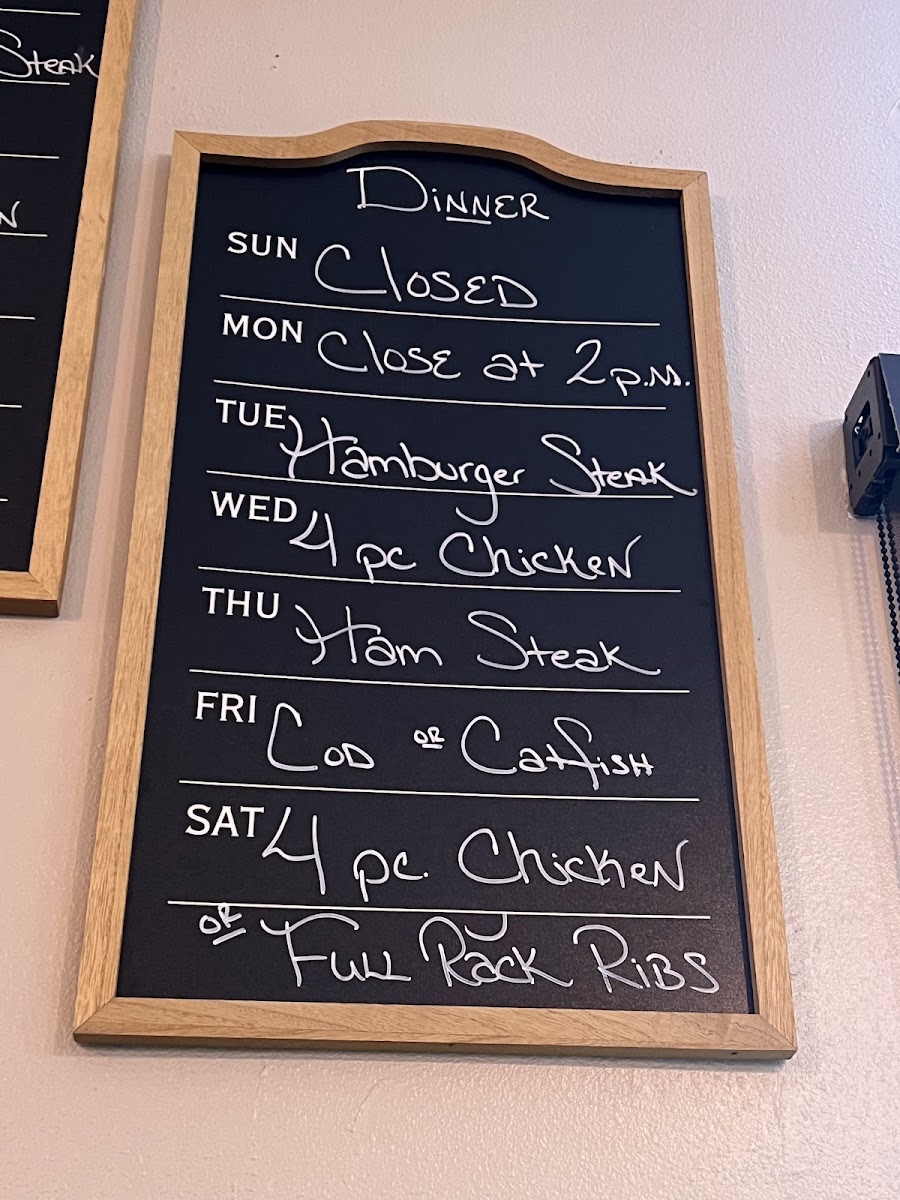 Steak
Dinner
SUN Closed
MON Close at 2 p.m.
TUE Hamburger Steak
WED 4 pc Chicken
THU Ham Steak
FRI Cod or Catfish
SAT 4 pc. Chicken
or Full Rack Ribs